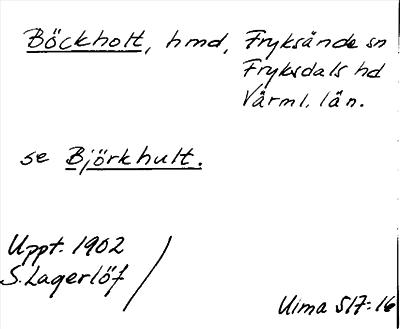 Böckholt, hmd, Fryksände sn
Fryksdals hd
Värml. län.
se Björkhult.
Uppt. 1902
S. Lagerlöf
Ulma 517:16